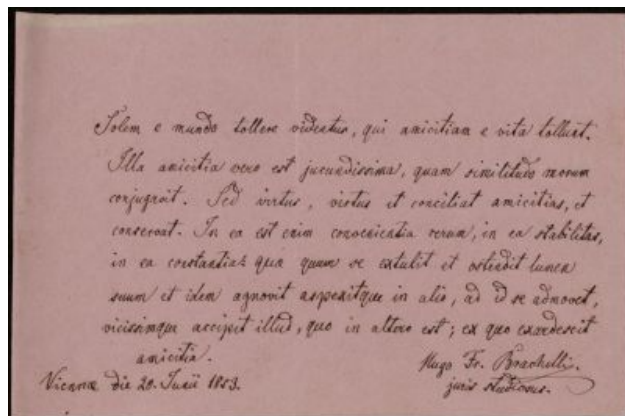 Solem e mundo tollere videntur, qui amicitiam e vita tollunt.
Illa amicitia vero est jucundissima, quam similitudo morum
conjugavit. Sed virtus, virtus et conciliat amicitias, et
conservat. In ea est enim convenientia rerum, in ea stabilitas,
in ea constantia: quae quum se extulit et ostendit lumen
suum et idem agnovit aspexitque in alio, ad id se admovet,
vicissimque accipit illud, quo in altero est; ex quo exardescit
amicitia.
Hugo Fr. Brachelli.
Viennae die 20. Junii 1853.
juris studiosus.